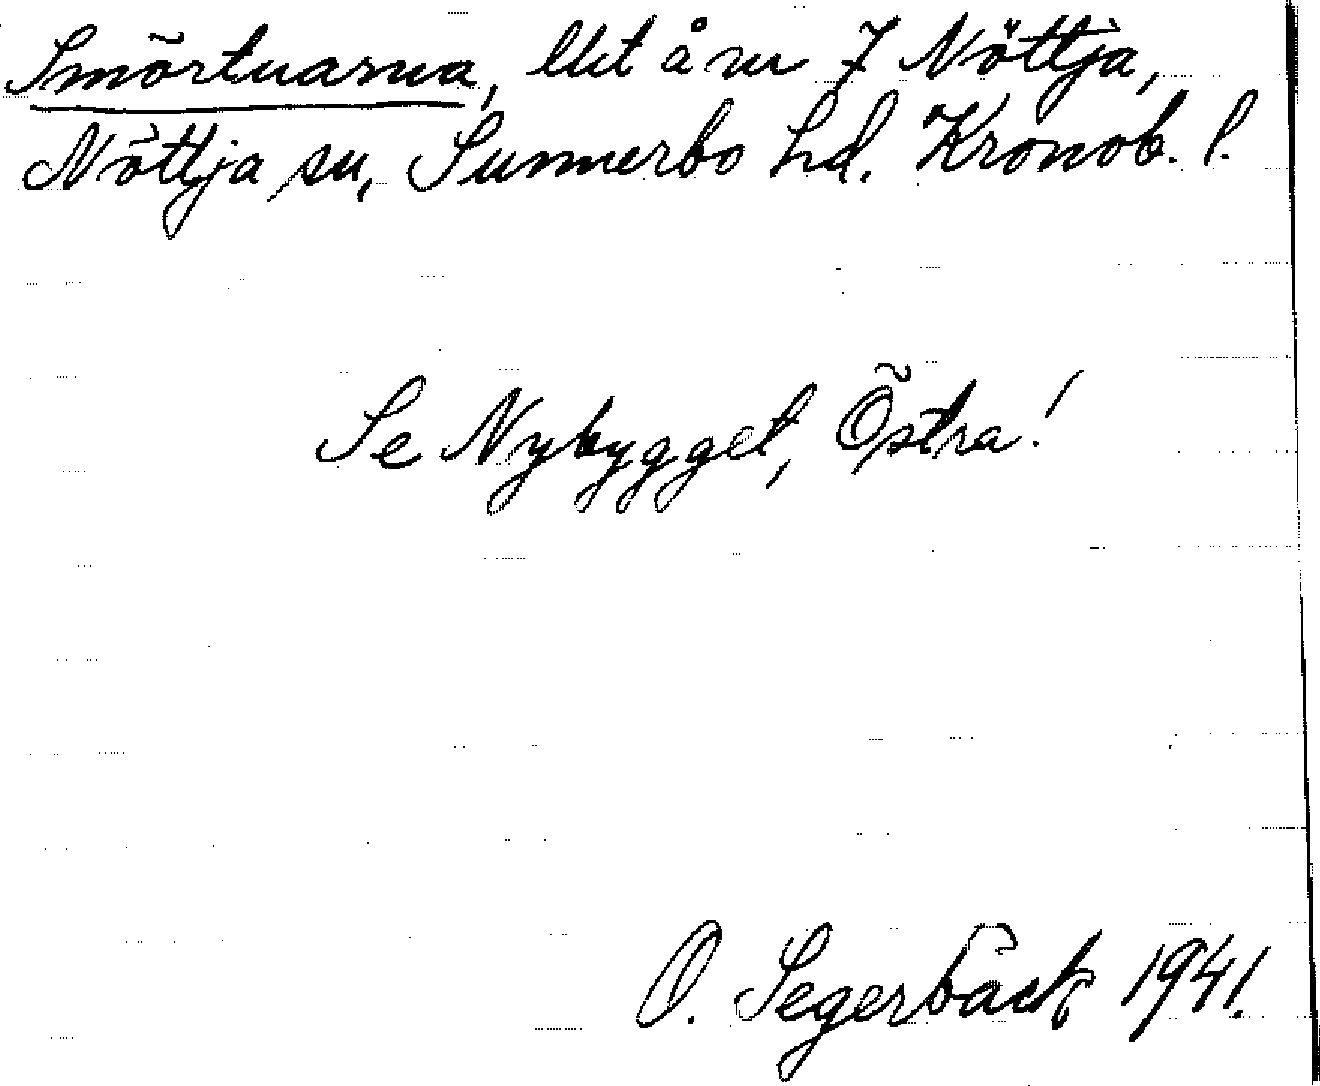 Smörtuarna, llet å nr 7 Nöttja,
Nöttja sn, Sunnerbo hd. Kronob. l.
Se Nybygget, Östra!
O. Segerbäck 1941.